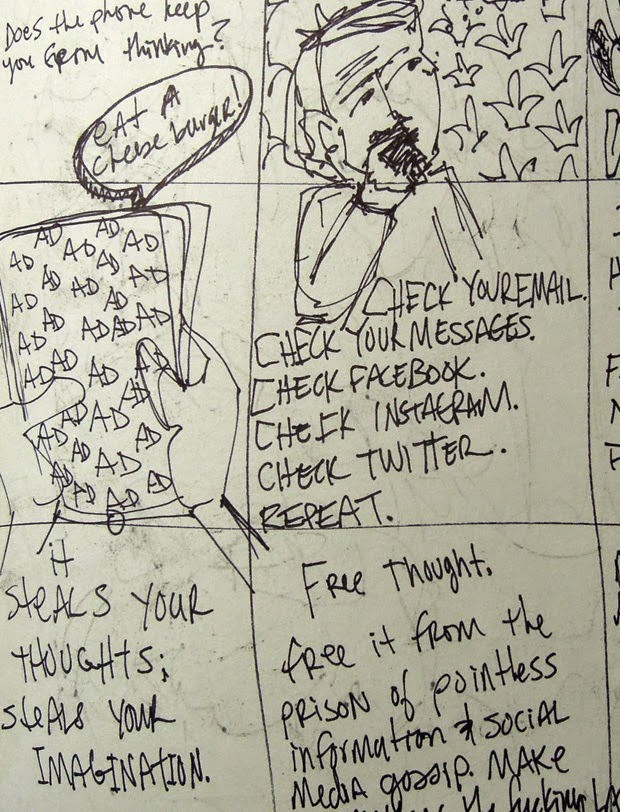 Does the phone keep
you from thinking?
EAT A
cheeseburger!
AD AD AD AD
AD AD AD AD AD
AD AD
AD AD AD AD
AD AD
AD AD AD AD
AD
AD AD
AD AD
AD AD
AD AD
AD AD
CHECK YOUR EMAIL.
CHECK YOUR MESSAGES.
CHECK FACEBOOK.
CHECK INSTAGRAM.
CHECK TWITTER.
REPEAT.
it
STEALS YOUR
THOUGHTS;
STEALS YOUR
IMAGINATION.
Free Thought.
free it from the
prison of pointless
information & social
media gossip. MAKE
fucking